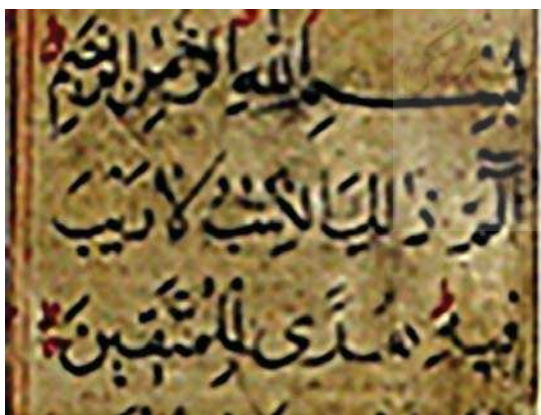 بِسْمِ اللهِ الرَّحْمٰنِ الرَّحِيْمِ
الٓمّٓ ذٰلِكَ الْكِتٰبُ لَا رَيْبَ
فِيهِ هُدًى لِلْمُتَّقِينَ